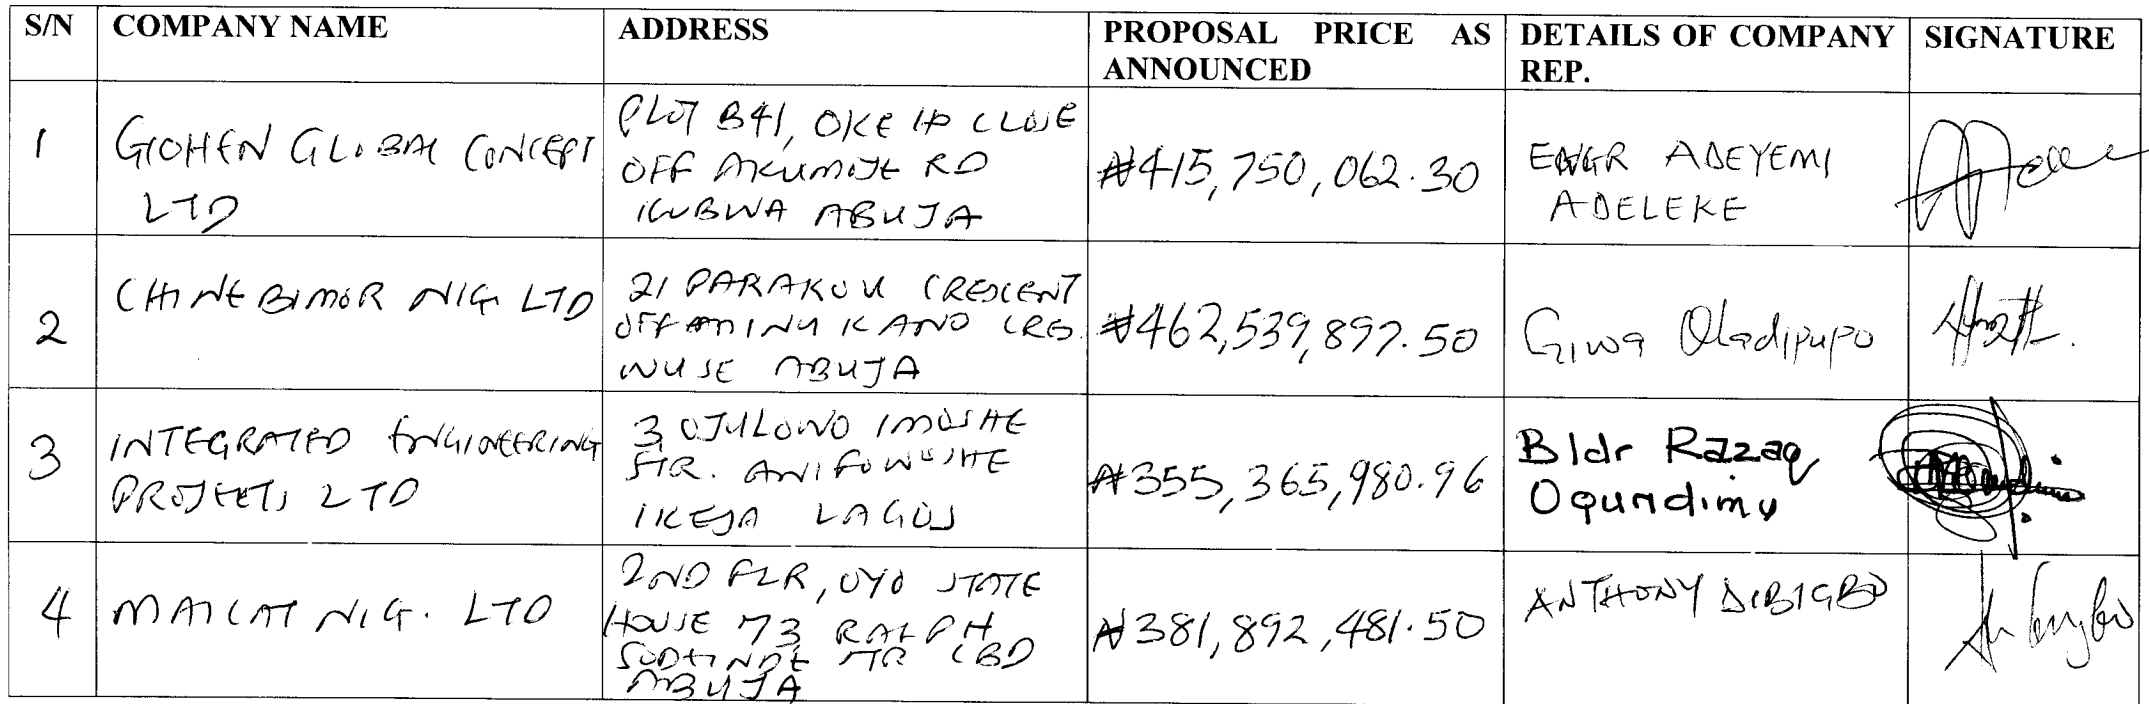 S/N COMPANY NAME ADDRESS PROPOSAL PRICE AS DETAILS OF COMPANY SIGNATURE
ANNOUNCED REP.
1
GOHEN GLOBAL CONCEPT
LTD
PLOT B41, OKE CLOSE
OFF RD
KUBWA ABUJA
₦415,750,062.30
ENGR ADEYEMI
ADELEKE
2
CHINEBIMOR NIG LTD
21 PARAKOU CRESCENT
OFF AMINU KANO CRES.
WUSE ABUJA
₦462,539,897.50
Giwa Oladipupo
3
INTEGRATED ENGINEERING
PROJECTS LTD
3 OJULOWO IMOSHE
STR. ANIFOWOSHE
IKEJA LAGOS
₦355,365,980.96
Bldr Razaq
Ogundimu
4
NIG. LTD
2ND FLR, OYO STATE
HOUSE 73 RALPH
SODEINDE STR CBD
ABUJA
₦381,892,481.50
ANTHONY DIBIGBO